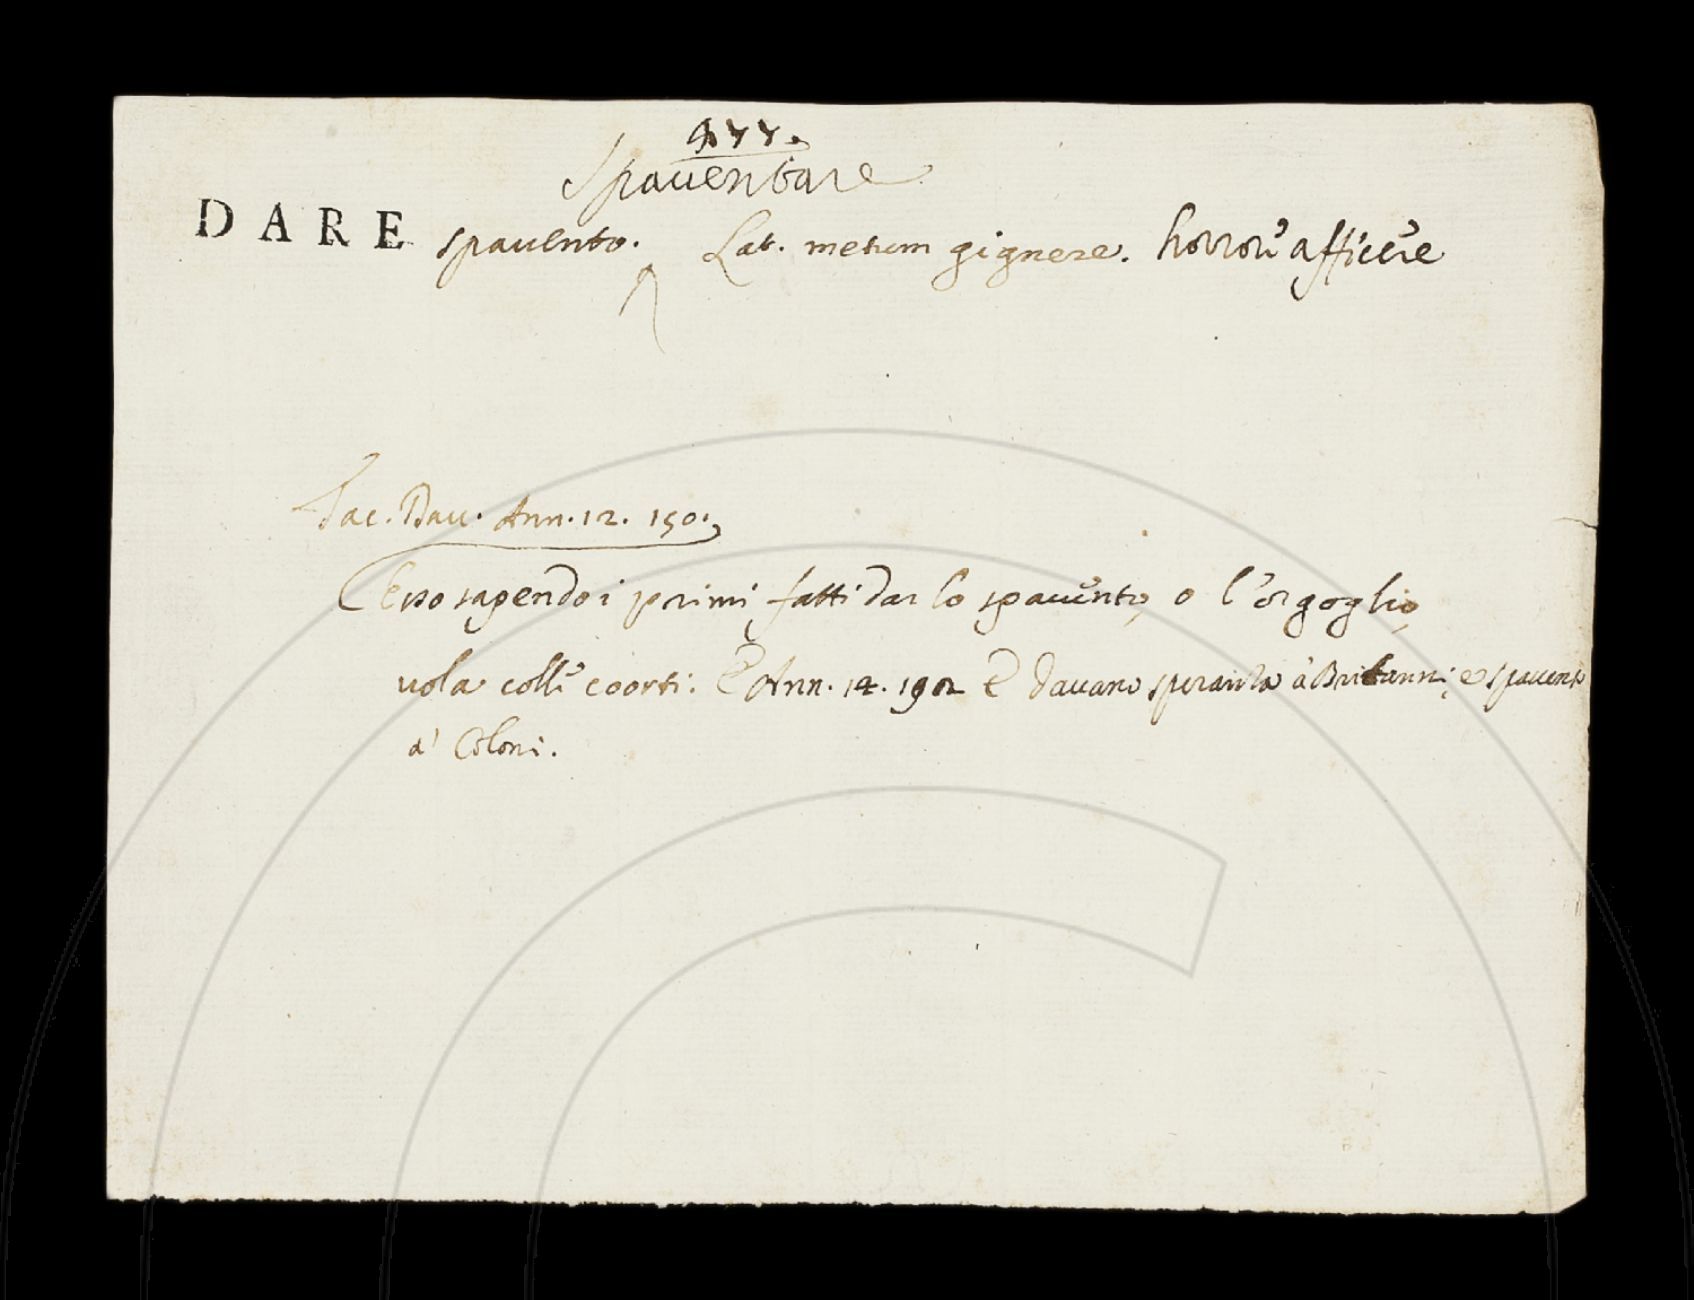 977.
Spauentare
DARE spauento. Lat. metum gignere. horrore afficere
Tac. Dau. Ann. 12. 150.
Esso sapendo i primi fatti dar lo spauento, o l'orgoglio,
uola colle coorti. E Ann. 14. 192 E dauano speranza a' Britanni, e spauento
a' Coloni.